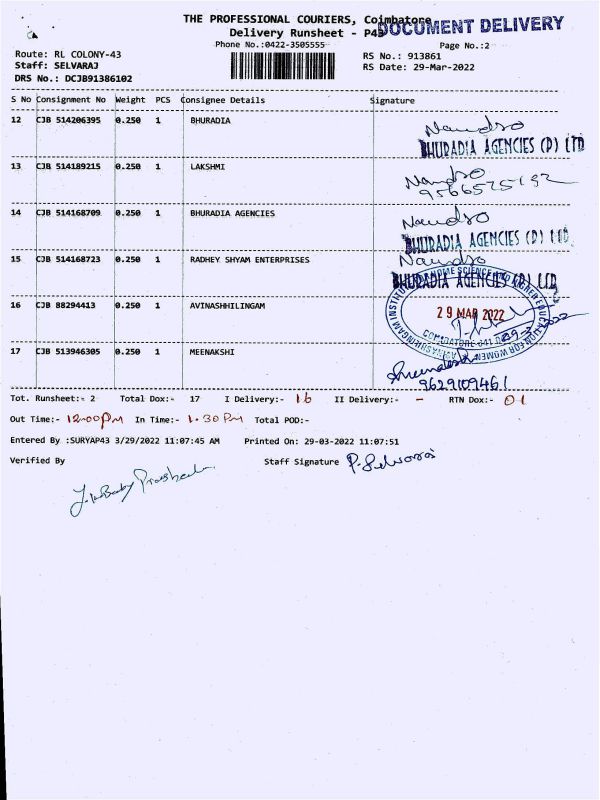 THE PROFESSIONAL COURIERS, Coimbatore
DOCUMENT DELIVERY
Delivery Runsheet - P43
Phone No.:0422-3505555
Page No.:2
Route: RL COLONY-43
RS No.: 913861
Staff: SELVARAJ
RS Date: 29-Mar-2022
DRS No.: DCJB91386102
S No Consignment No Weight PCS Consignee Details Signature
12 CJB 514206395 0.250 1 BHURADIA
BHURADIA AGENCIES (P) LTD
13 CJB 514189215 0.250 1 LAKSHMI
9566525192
14 CJB 514168709 0.250 1 BHURADIA AGENCIES
BHURADIA AGENCIES (P) LTD
15 CJB 514168723 0.250 1 RADHEY SHYAM ENTERPRISES
BHURADIA AGENCIES (P) LTD
16 CJB 88294413 0.250 1 AVINASHHILINGAM
29 MAR 2022
17 CJB 513946305 0.250 1 MEENAKSHI
9629109461
Tot. Runsheet:- 2 Total Dox:- 17 I Delivery:- 16 II Delivery:- - RTN Dox:- 01
Out Time:- 12.00PM In Time:- 1.30 PM Total POD:-
Entered By :SURYAP43 3/29/2022 11:07:45 AM Printed On: 29-03-2022 11:07:51
Verified By Staff Signature P. Selvaraj